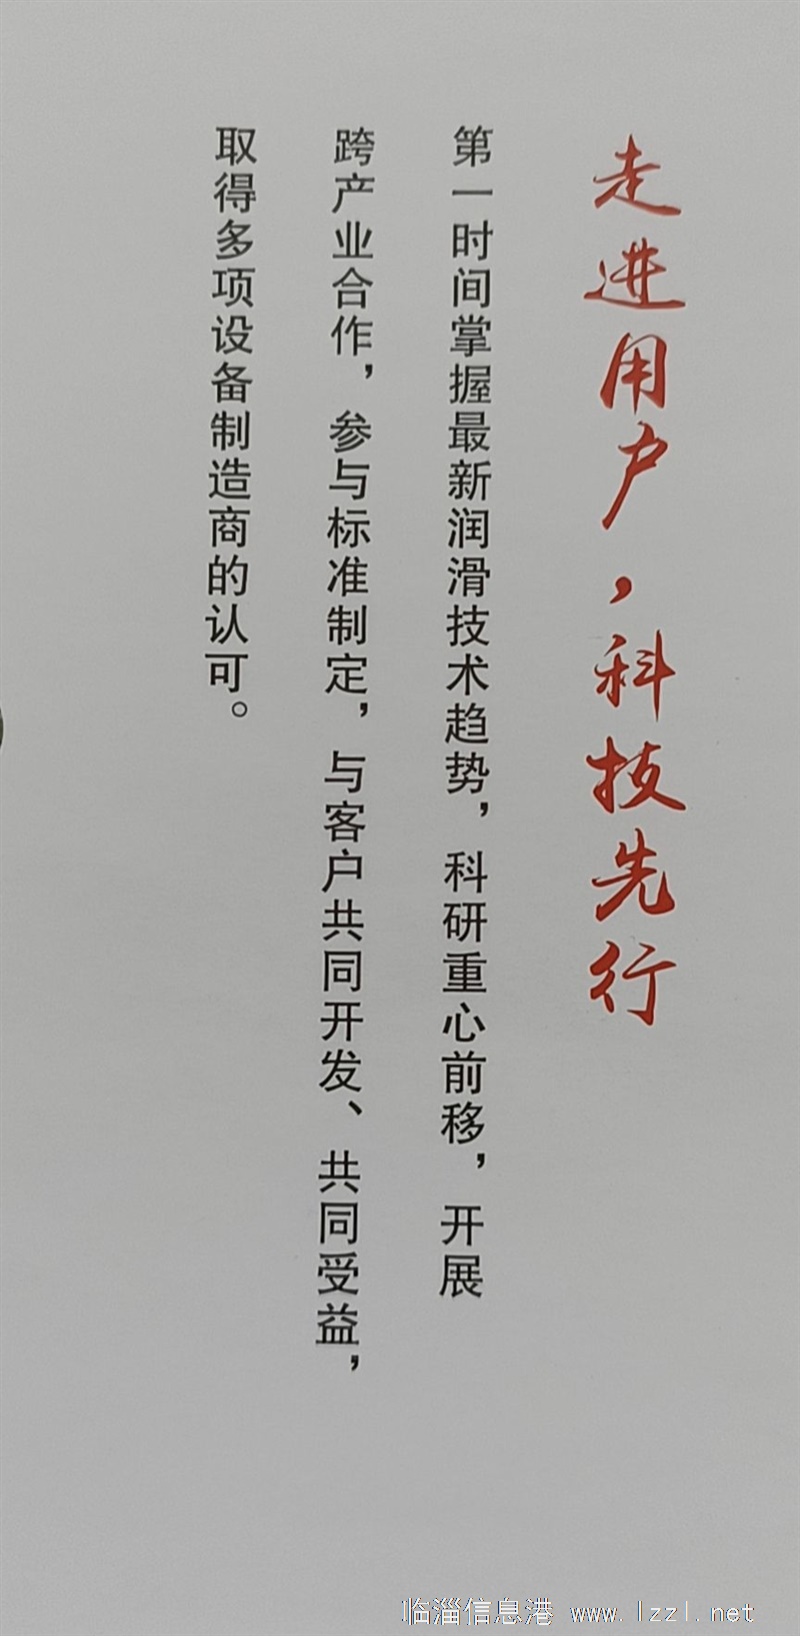 走进用户，科技先行
第一时间掌握最新润滑技术趋势，科研重心前移，开展
跨产业合作，参与标准制定，与客户共同开发、共同受益，
取得多项设备制造商的认可。
临淄信息港 www.lzzl.net